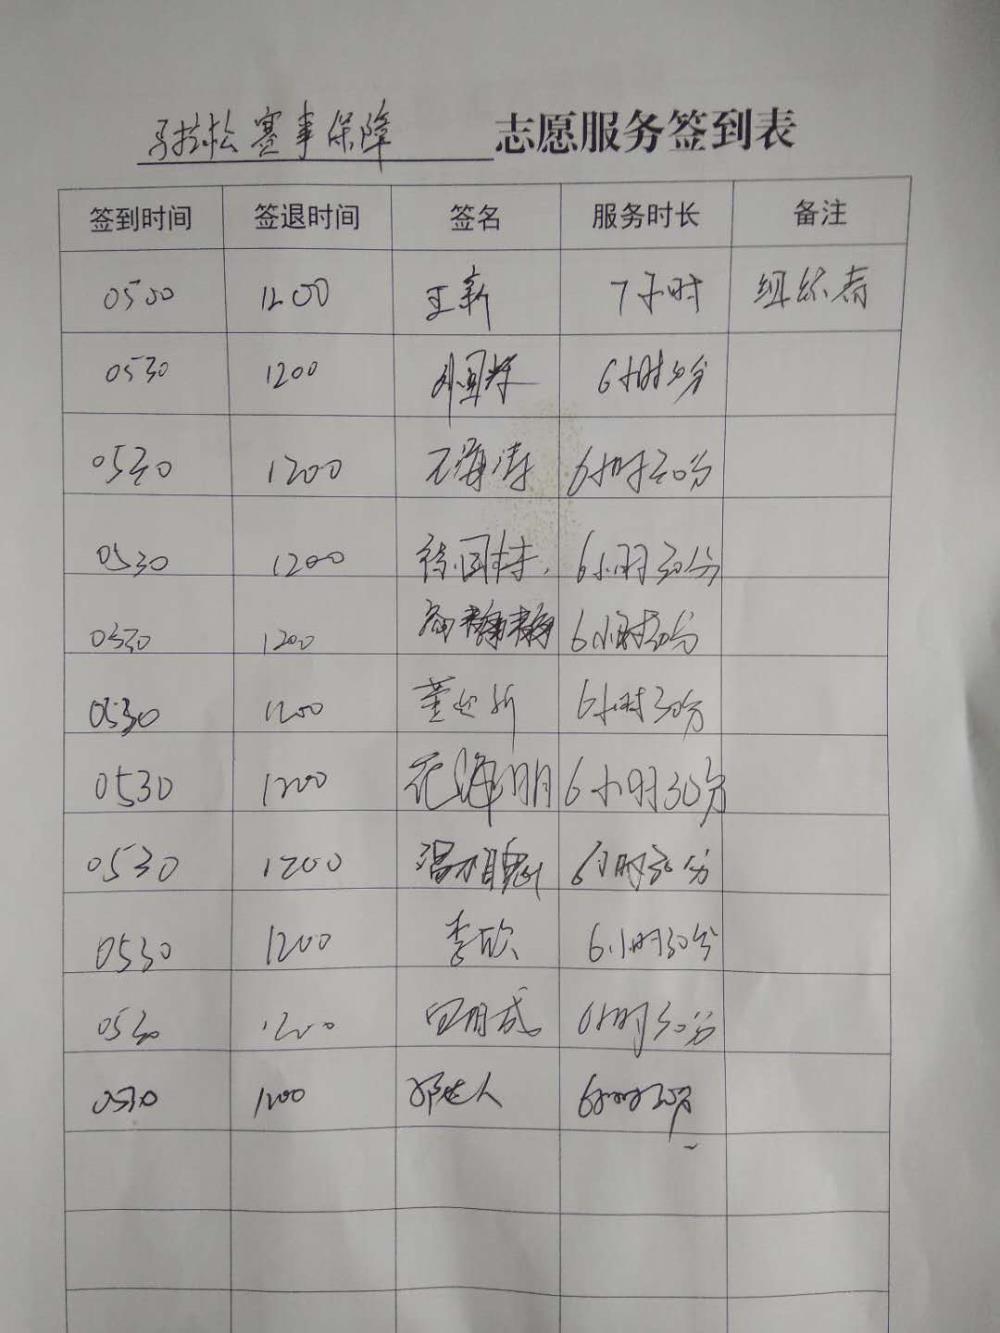 马拉松赛事保障 志愿服务签到表
签到时间 签退时间 签名 服务时长 备注
0500 1200 王新 7小时 组织者
0530 1200 6小时30分
0530 1200 石海涛 6小时30分
0530 1200 6小时30分
0530 1200 6小时30分
0530 1200 董延新 6小时30分
0530 1200 花海明 6小时30分
0530 1200 6小时30分
0530 1200 李欣 6小时30分
0530 1200 6小时30分
0530 1200 6小时30分